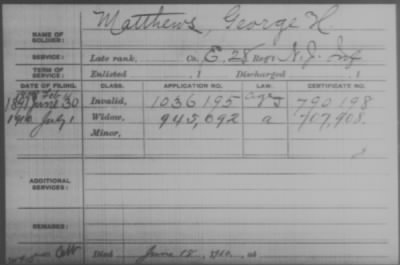 NAME OF SOLDIER: Matthews, George H
SERVICE: Late rank, Co. E, 28 Reg't N.J. Inf
TERM OF SERVICE: Enlisted , 1 Discharged , 1
DATE OF FILING. CLASS. APPLICATION NO. LAW. CERTIFICATE NO.
1891 June 30 Invalid, 1036195 790198
1910 July 1 Widow, 945,092 a 707,908.
Minor,
ADDITIONAL SERVICES:
REMARKS:
Died June 15, 1910, at